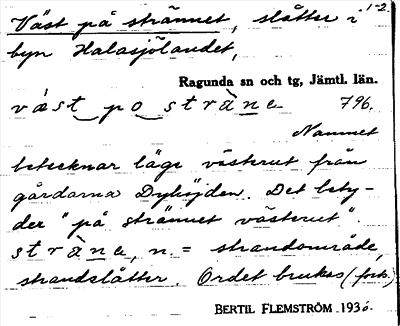 Väst på strännet, slåtter i 1-2
byn Halasjölandet,
Ragunda sn och tg, Jämtl. län.
væst po stràne 796.
Namnet
betecknar läge västerut från
gårdarna Dyhöjden. Det bety-
der "på strännet västerut".
stràne, n. = strandområde,
strandslåtter. Ordet brukas (fork.)
BERTIL FLEMSTRÖM 1936.